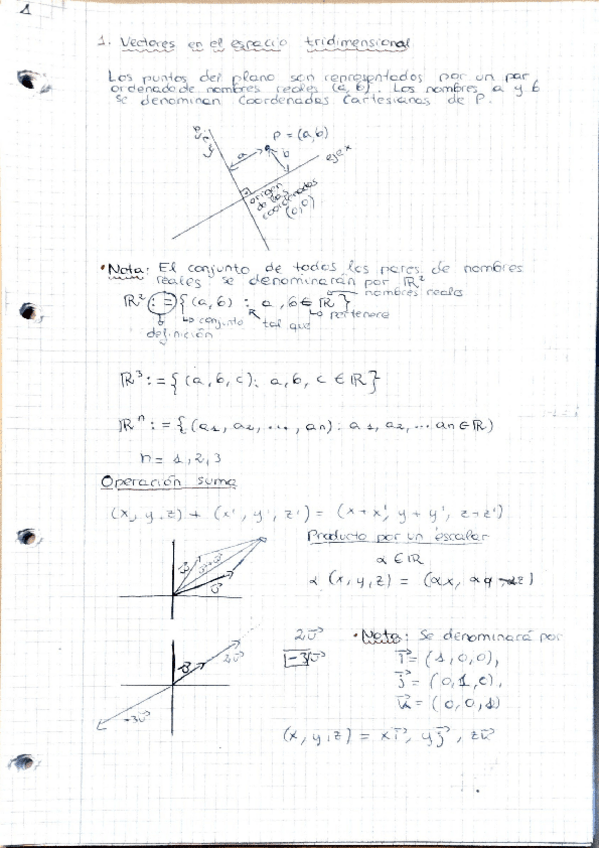 1
1. Vectores en el espacio tridimensional
Los puntos del plano son representados por un par
ordenado de nombres reales (a, b). Los nombres a y b
se denominan Coordenadas Cartesianas de P.
eje y
P = (a, b)
a
b
eje x
origen
de las
coordenadas
(0,0)
• Nota: El conjunto de todos los pares de nombres
reales se denominarán por ℝ²
nombres reales
ℝ² := {(a, b) : a, b ∈ ℝ}
↳ conjunto tal que ↳ pertenece
definición
ℝ³ := {(a, b, c): a, b, c ∈ ℝ}
ℝⁿ := {(a1, a2, ..., an): a1, a2, ... an ∈ ℝ)
n = 1, 2, 3
Operación suma
(x, y, z) + (x', y', z') = (x + x', y + y', z + z')
Producto por un escalar
α ∈ ℝ
α (x, y, z) = (αx, αy, αz)
2v⃗
-3v⃗
• Nota: Se denominará por
i⃗ = (1, 0, 0),
j⃗ = (0, 1, 0),
k⃗ = (0, 0, 1)
2v⃗
-3v⃗
(x, y, z) = xi⃗, yj⃗, zk⃗